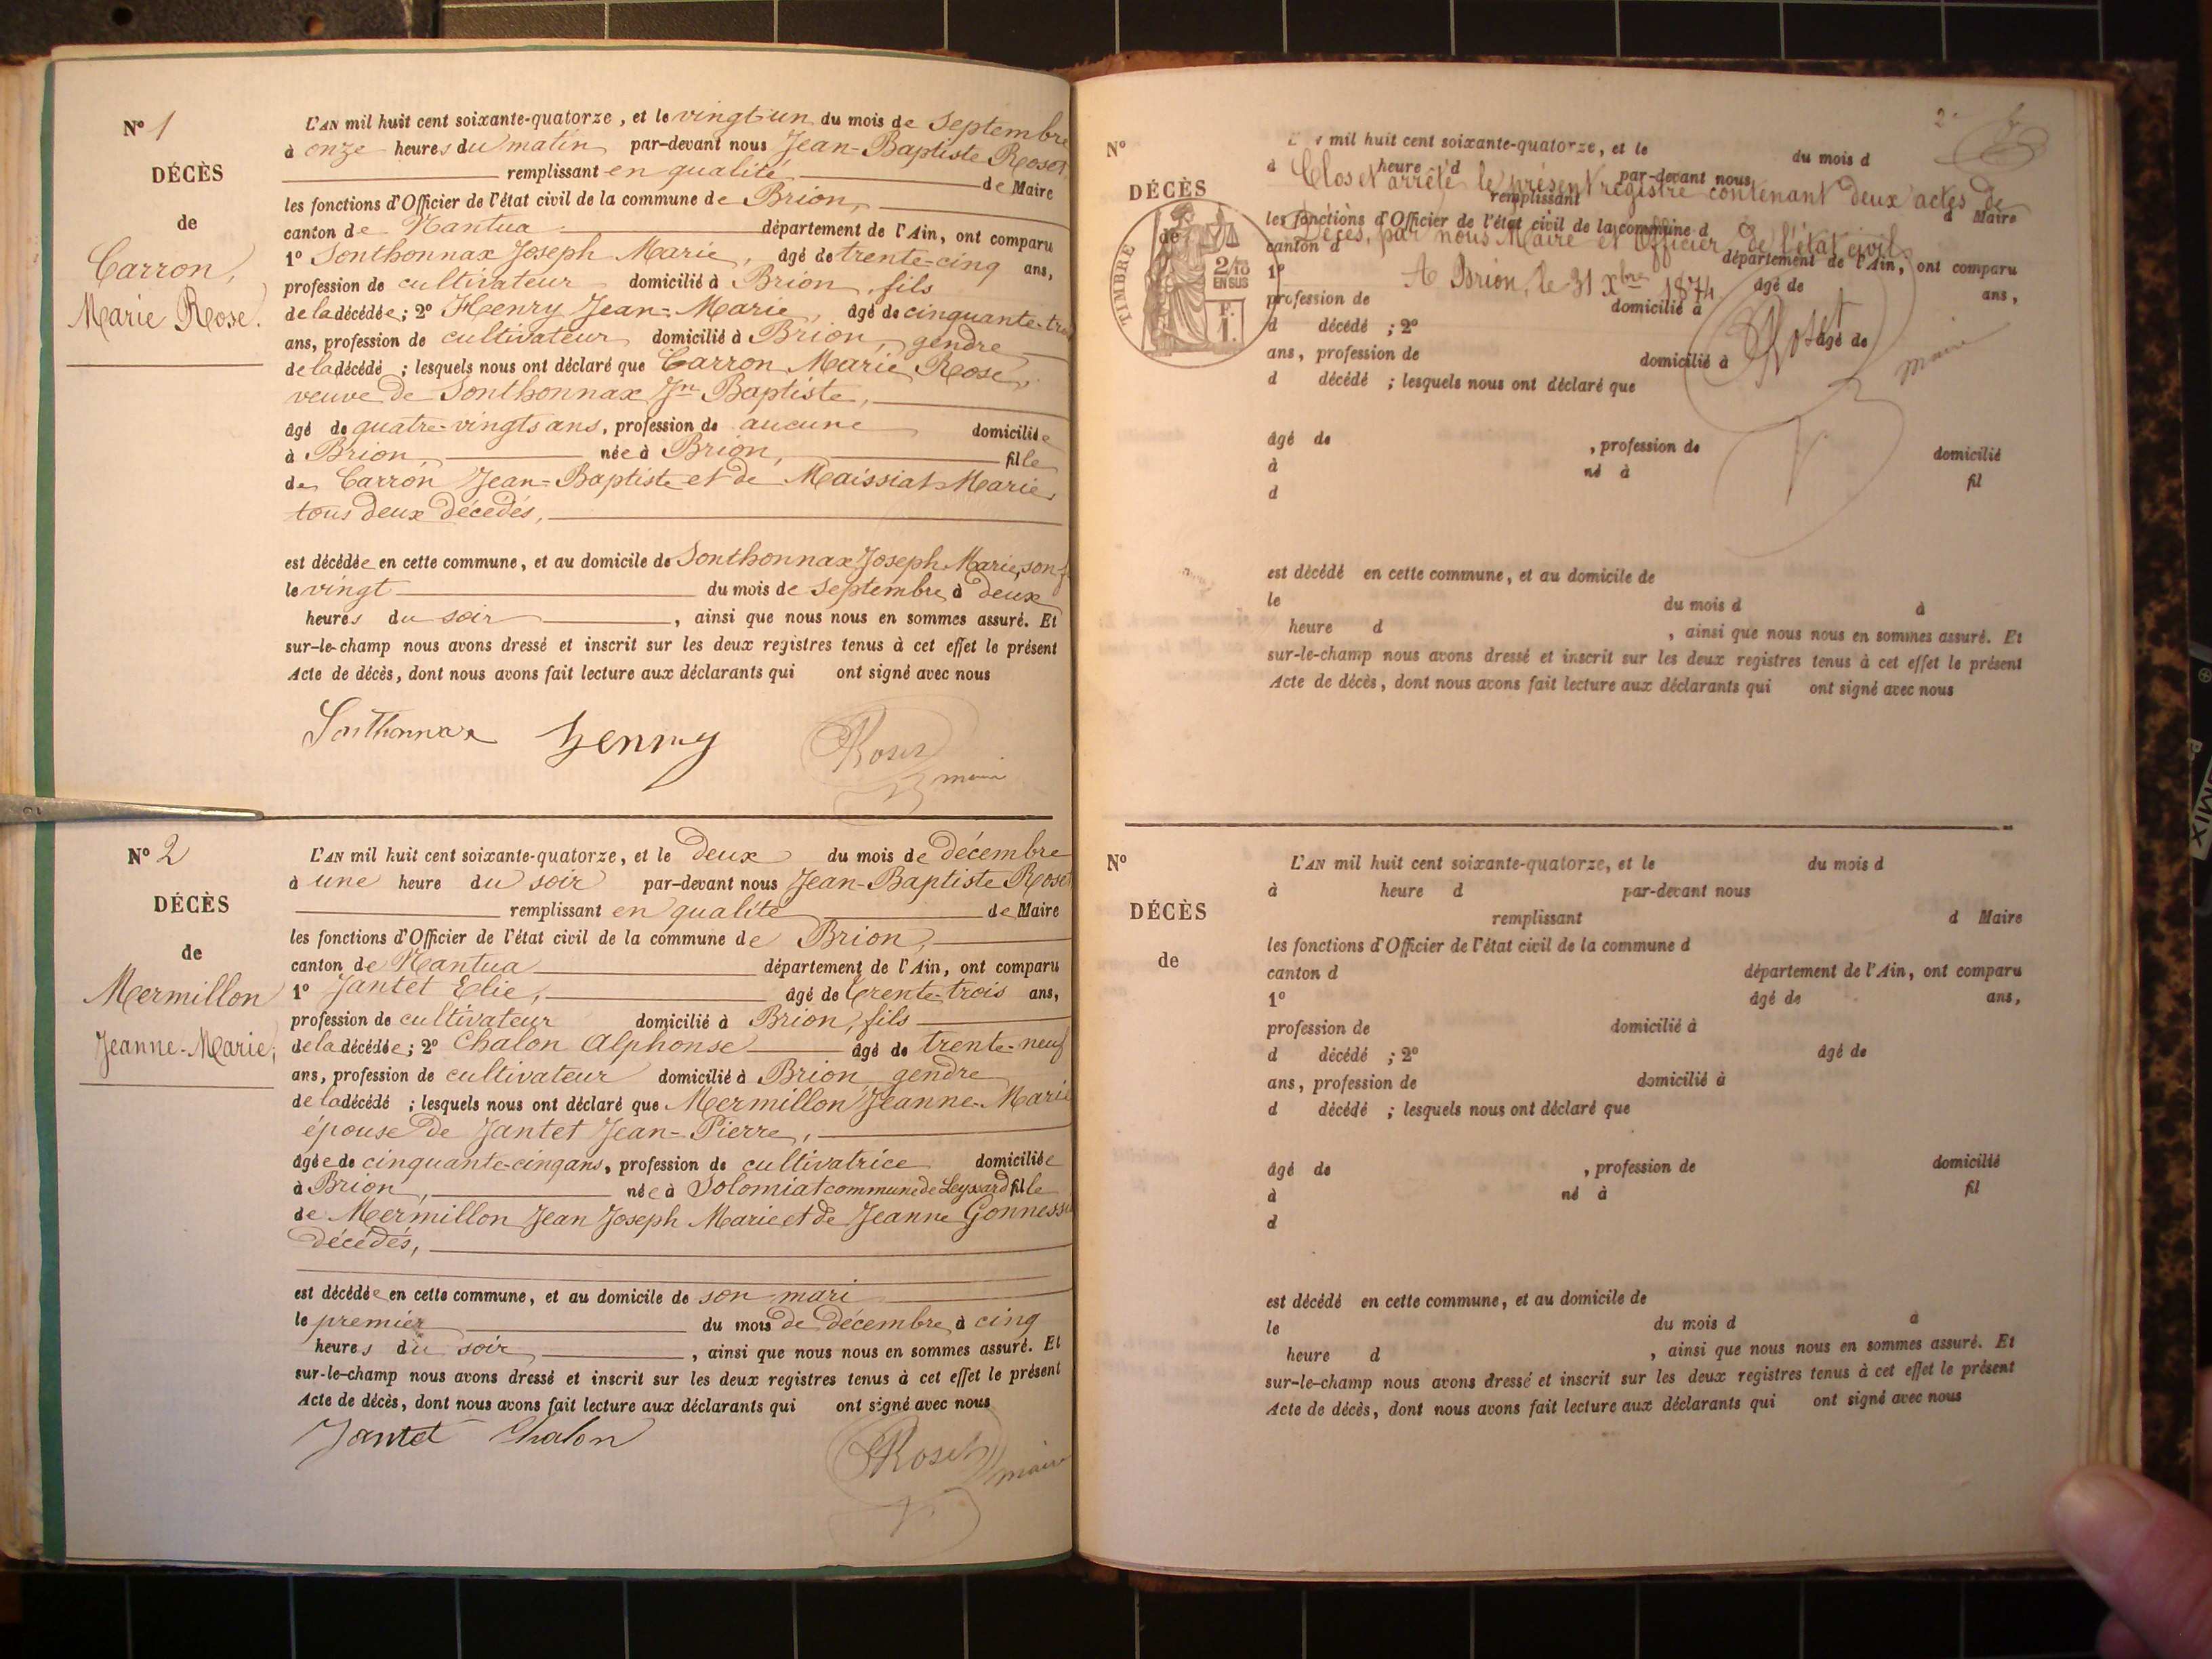 N° 1
DÉCÈS
de
Carron,
Marie Rose.
L'AN mil huit cent soixante-quatorze, et le vingt-un du mois de Septembre
à onze heures du matin par-devant nous Jean-Baptiste Roset
remplissant en qualité de Maire
les fonctions d'Officier de l'état civil de la commune de Brion,
canton de Nantua département de l'Ain, ont comparu
1° Sonthonnax Joseph Marie, âgé de trente-cinq ans,
profession de cultivateur domicilié à Brion, fils
de la décédée; 2° Henry Jean-Marie, âgé de cinquante-tr
ans, profession de cultivateur domicilié à Brion, gendre
de la décédé ; lesquels nous ont déclaré que Carron Marie Rose,
veuve de Sonthonnax Jn Baptiste,
âgé de quatre-vingts ans, profession de aucune domiciliée
à Brion, née à Brion, fille
de Carron Jean-Baptiste et de Maissiat Marie
tous deux décédés,
est décédée en cette commune, et au domicile de Sonthonnax Joseph Marie, son
le vingt du mois de Septembre à deux
heures du soir, ainsi que nous nous en sommes assuré. Et
sur-le-champ nous avons dressé et inscrit sur les deux registres tenus à cet effet le présent
Acte de décès, dont nous avons fait lecture aux déclarants qui ont signé avec nous
Sonthonnax henry Roset
maire
N° 2
DÉCÈS
de
Mermillon
Jeanne-Marie,
L'AN mil huit cent soixante-quatorze, et le deux du mois de décembre
à une heure du soir par-devant nous Jean-Baptiste Roset
remplissant en qualité de Maire
les fonctions d'Officier de l'état civil de la commune de Brion,
canton de Nantua département de l'Ain, ont comparu
1° Jantet Elie, âgé de trente-trois ans,
profession de cultivateur domicilié à Brion, fils
de la décédée; 2° Chalon Alphonse âgé de trente-neuf
ans, profession de cultivateur domicilié à Brion gendre
de la décédé ; lesquels nous ont déclaré que Mermillon Jeanne-Marie
épouse de Jantet Jean-Pierre,
âgée de cinquante-cinq ans, profession de cultivatrice domiciliée
à Brion, née à Solomiat commune de Leyssard fille
de Mermillon Jean Joseph Marie et de Jeanne
décédés,
est décédée en cette commune, et au domicile de son mari
le premier du mois de décembre à cinq
heures du soir, ainsi que nous nous en sommes assuré. Et
sur-le-champ nous avons dressé et inscrit sur les deux registres tenus à cet effet le présent
Acte de décès, dont nous avons fait lecture aux déclarants qui ont signé avec nous
Jantet Chalon Roset
maire
2
N°
DÉCÈS
de
TIMBRE
2/10
EN SUS
F.
1.
mil huit cent soixante-quatorze, et le du mois d
à heure d par-devant nous
Clos et arrêté le présent registre contenant deux actes de
remplissant d Maire
les fonctions d'Officier de l'état civil de la commune d
Décès, par nous Maire et Officier de l'état civil.
canton d département de l'Ain, ont comparu
A Brion, le 31 Xbre 1874.
1° âgé de ans,
profession de domicilié à
Roset
maire
d décédé ; 2° âgé de
ans, profession de domicilié à
d décédé ; lesquels nous ont déclaré que
âgé de , profession de domicilié
à né à fil
d
est décédé en cette commune, et au domicile de
le du mois d à
heure d , ainsi que nous nous en sommes assuré. Et
sur-le-champ nous avons dressé et inscrit sur les deux registres tenus à cet effet le présent
Acte de décès, dont nous avons fait lecture aux déclarants qui ont signé avec nous
N°
DÉCÈS
de
L'AN mil huit cent soixante-quatorze, et le du mois d
à heure d par-devant nous
remplissant d Maire
les fonctions d'Officier de l'état civil de la commune d
canton d département de l'Ain, ont comparu
1° âgé de ans,
profession de domicilié à
d décédé ; 2° âgé de
ans, profession de domicilié à
d décédé ; lesquels nous ont déclaré que
âgé de , profession de domicilié
à né à fil
d
est décédé en cette commune, et au domicile de
le du mois d à
heure d , ainsi que nous nous en sommes assuré. Et
sur-le-champ nous avons dressé et inscrit sur les deux registres tenus à cet effet le présent
Acte de décès, dont nous avons fait lecture aux déclarants qui ont signé avec nous